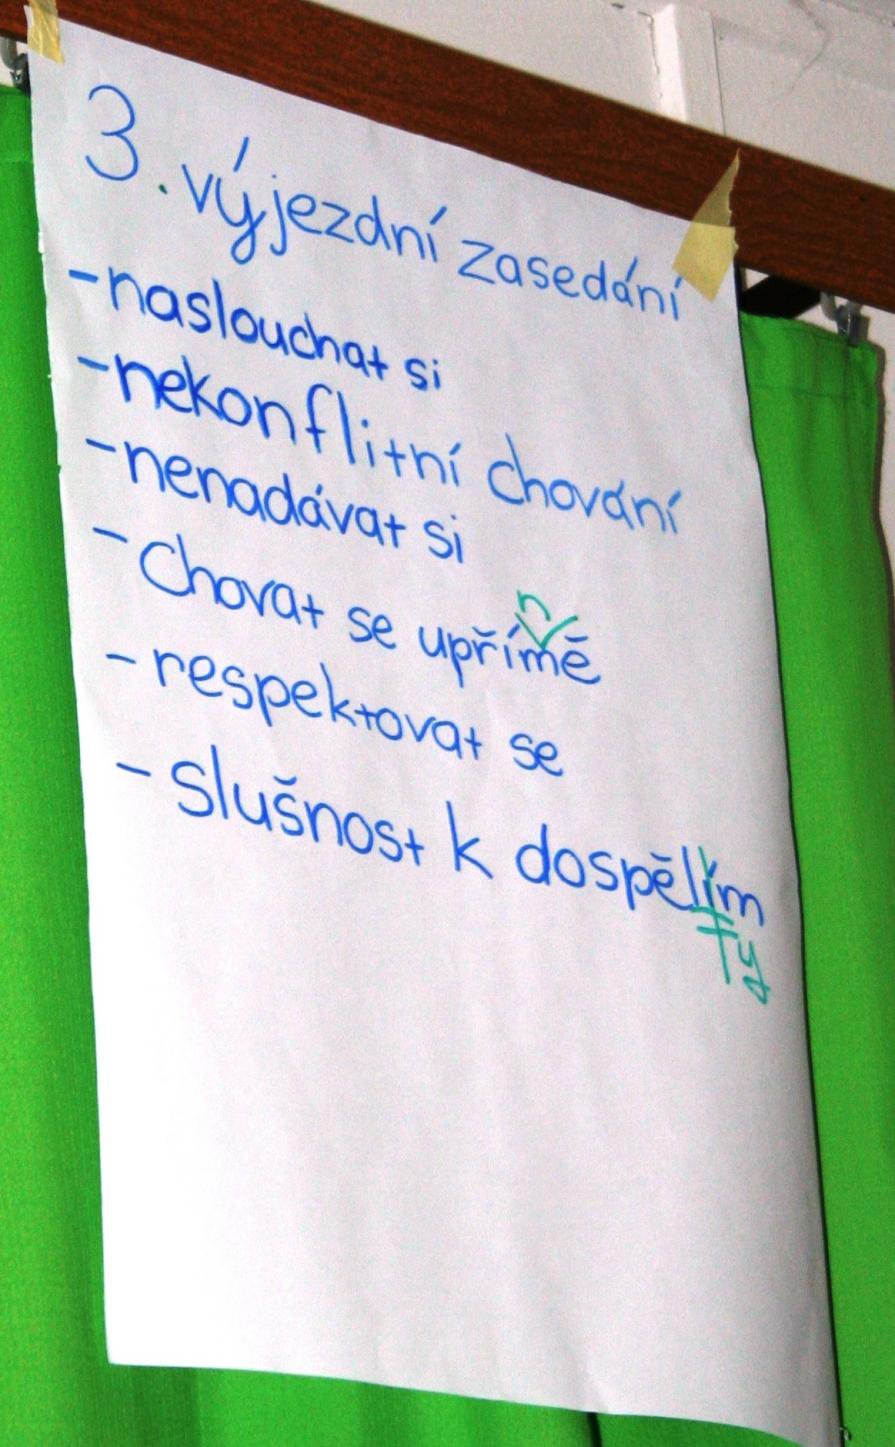 3. výjezdní zasedání
-naslouchat si
-nekonflitní chování
-nenadávat si
-Chovat se upřímě
n
-respektovat se
-slušnost k dospělím
y